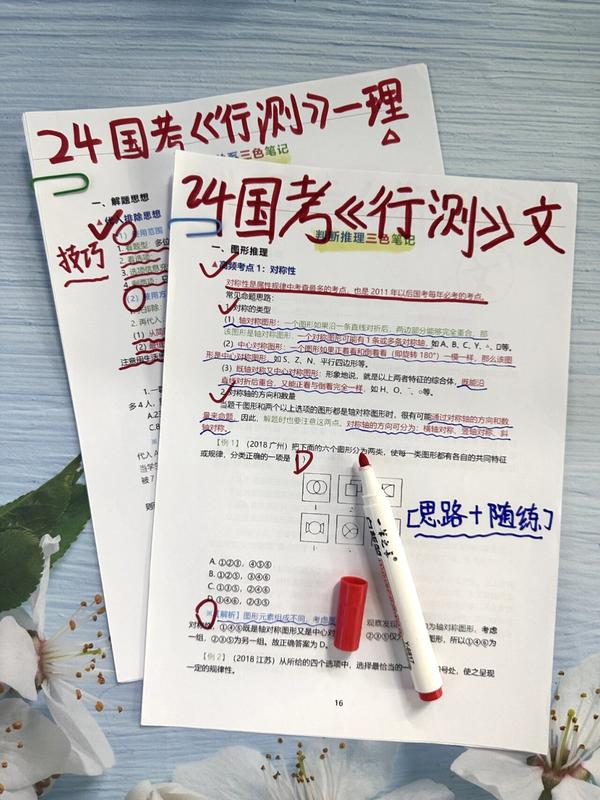 24国考《行测》一理
三色笔记
一、解题思想
▲代入排除思想
技巧
1. 看题型：多位
2. 看选项：
3. 选项信息充
注意相生活
24国考《行测》文
判断推理三色笔记
一、图形推理
▲高频考点1：对称性
对称性是属性规律中考查最多的考点，也是2011年以后国考每年必考的考点。
常见命题思路：
1. 对称的类型
（1）轴对称图形：一个图形如果沿一条直线对折后，两边部分能够完全重合，那
该图形是轴对称图形，一个对称图形可能有1条或多条对称轴，如A、B、C、Y、△、□等。
（2）中心对称图形：一个图形如果正着看和倒着看（即旋转180°）一模一样，那么该图
形是中心对称图形，如S、Z、N、平行四边形等。
（3）既轴对称又中心对称图形：形象地说，就是以上两者特征的综合体，既能沿
直线对折后重合，又能正看与倒看完全一样，如H、O、
2. 对称轴的方向和数量
当题干图形和两个以上选项的图形都是轴对称图形时，很有可能通过对称轴的方向和数
量来命题，因此，解题时也要注意这两点。对称轴的方向可分为：横轴对称、竖轴对称、斜
轴对称。
【例1】（2018广州）把下面的六个图形分为两类，使每一类图形都有各自的共同特征
或规律，分类正确的一项是（ ）
D
[思路+随练]
A. ①②③，④⑤⑥
B. ①②⑤，③④⑥
C. ①③⑤，②④⑥
D. ①④⑥，②③⑤
【解析】图形元素组成不同，考虑
观察发现
为轴对称图形，考虑
①④⑥既是轴对称图形又是中心对
②③⑤仅为
图形，所以①④⑥为
一组，②③⑤为另一组。故正确答案为D。
【例2】（2018江苏）从所给的四个选项中，选择最恰当的一
号处，使之呈现
一定的规律性。
16